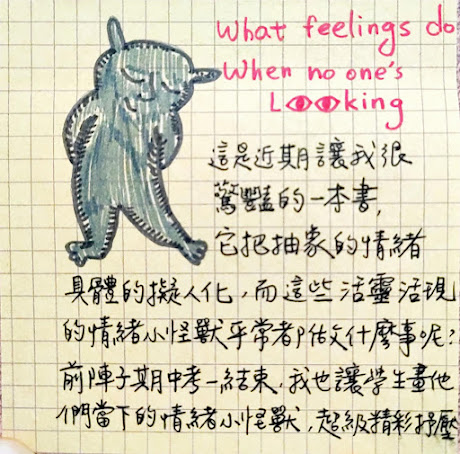 What feelings do
When no one's
Looking
這是近期讓我很
驚豔的一本書,
它把抽象的情緒
具體的擬人化,而這些活靈活現
的情緒小怪獸平常都做什麼事呢?
前陣子期中考一結束,我也讓學生畫他
們當下的情緒小怪獸,超級精彩抒壓